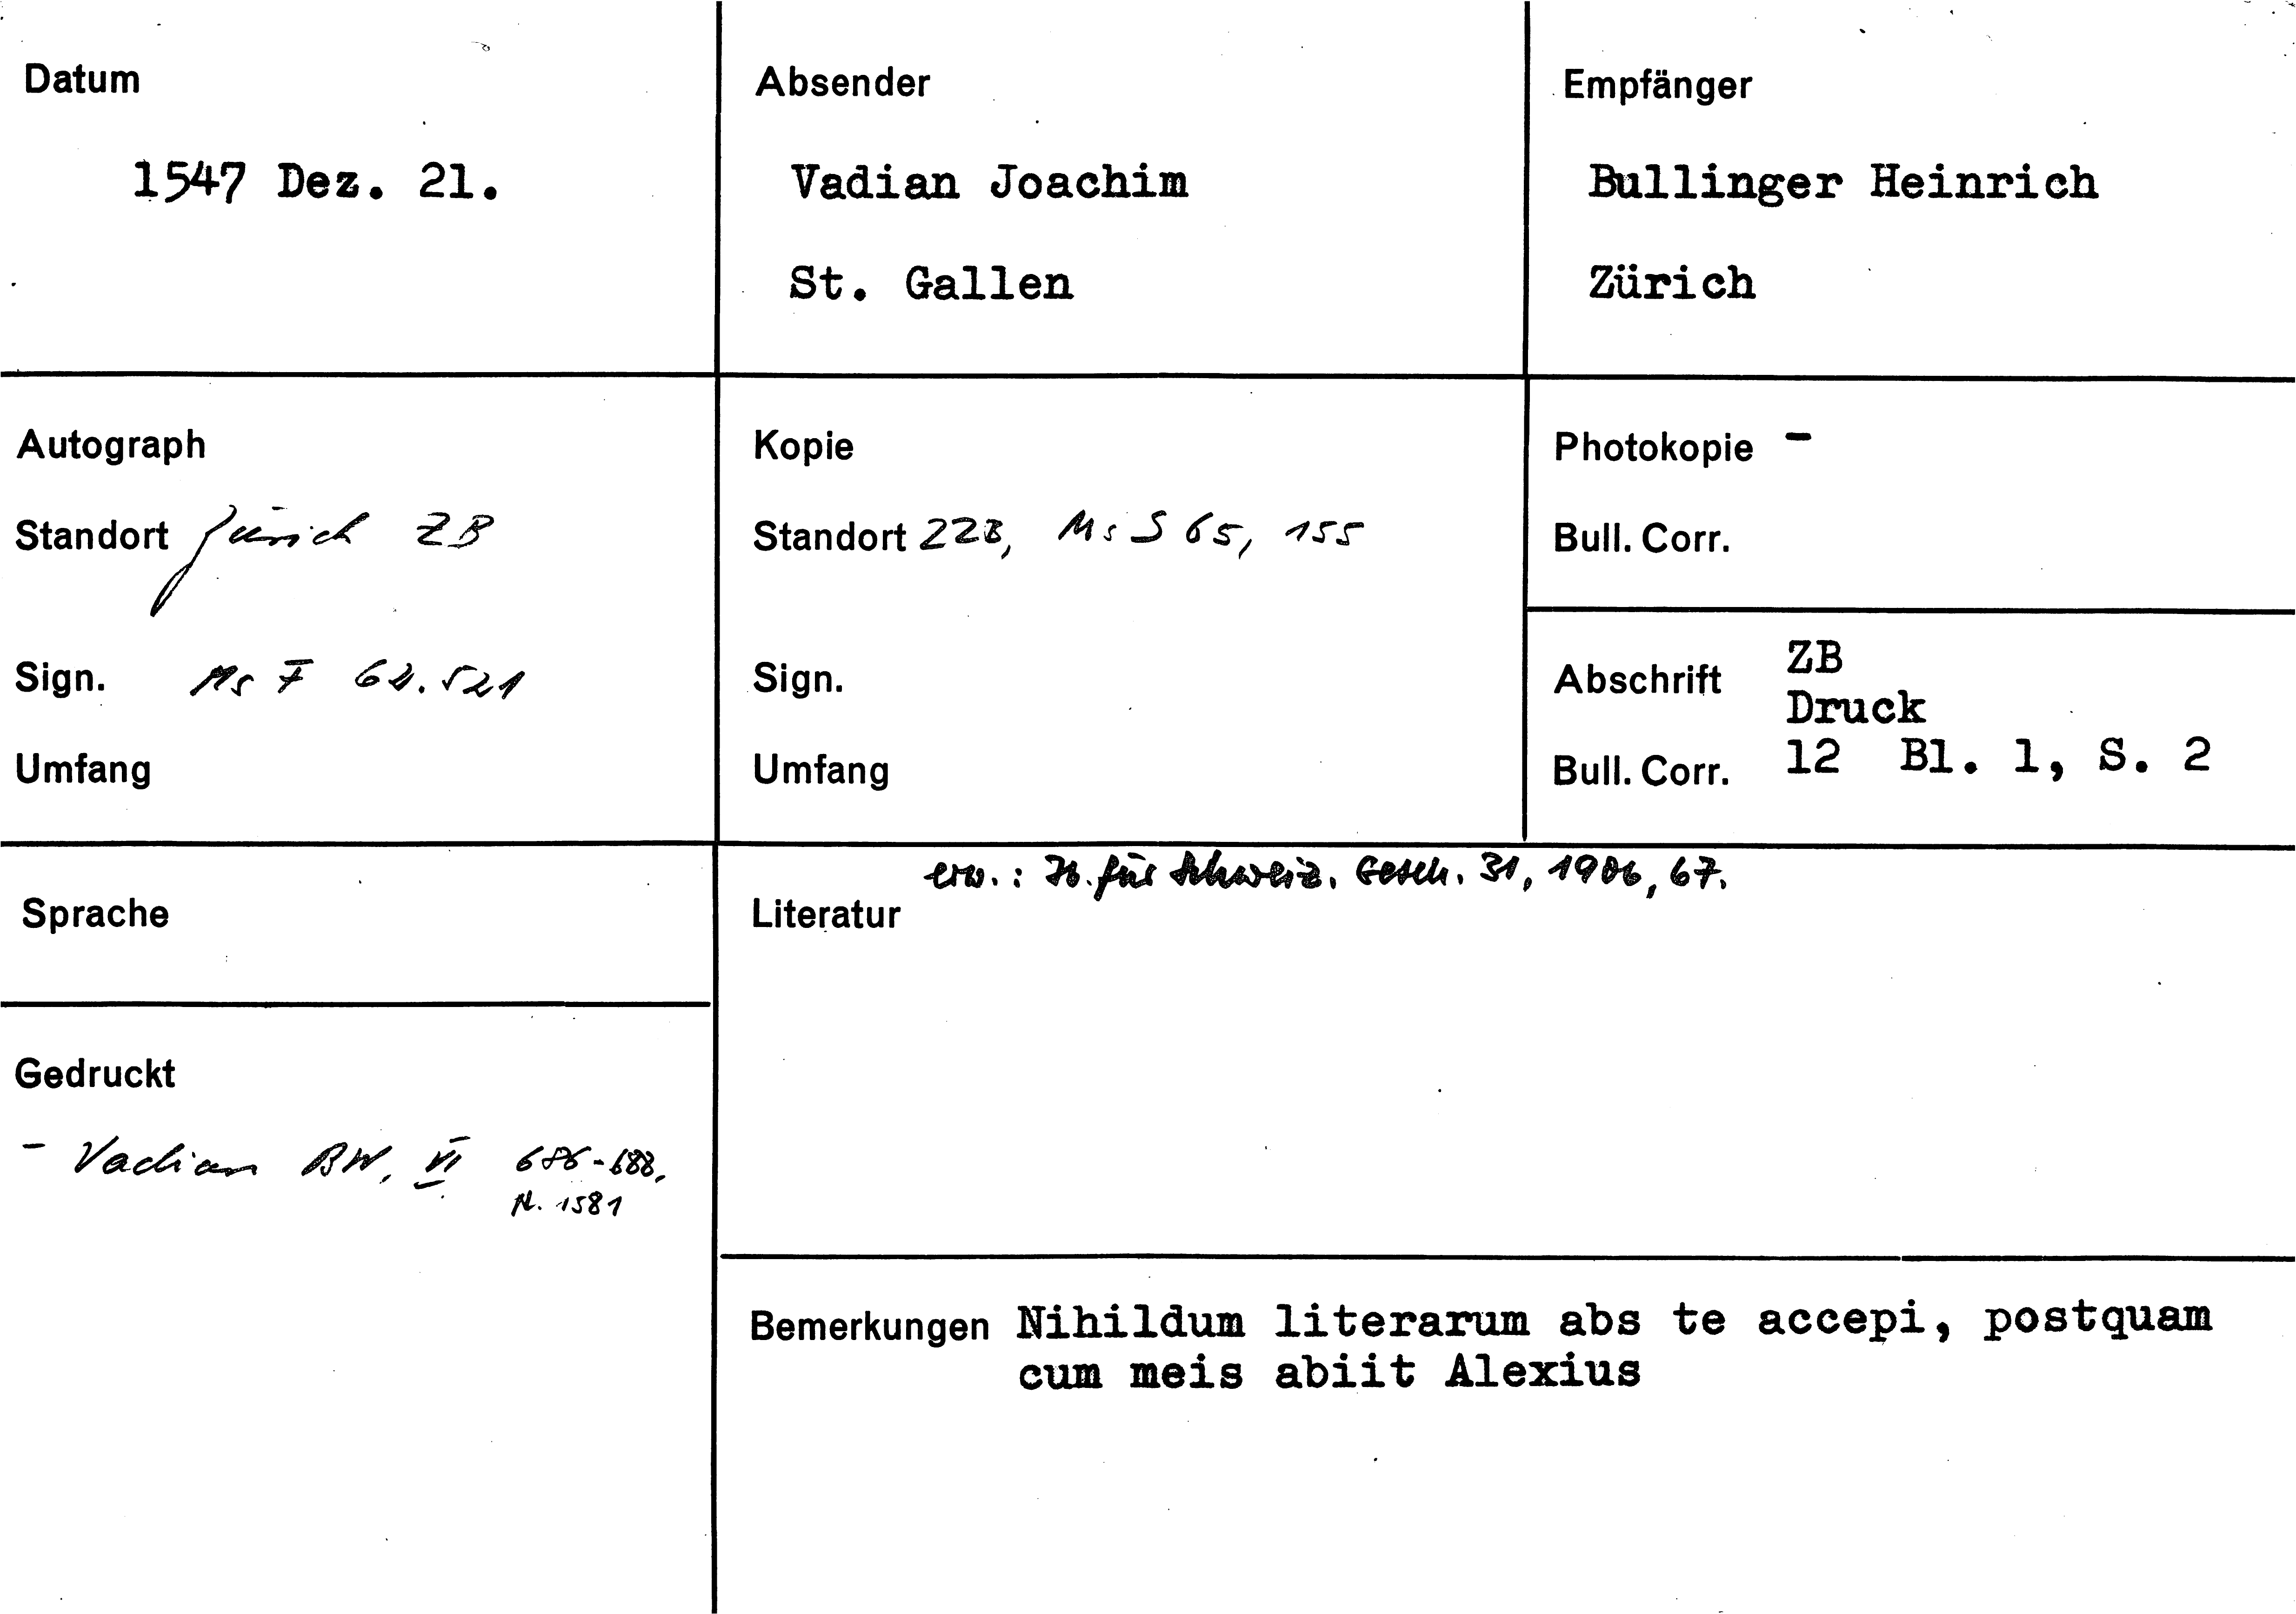 Datum
1547 Dez. 21.
Absender
Vadian Joachim
St. Gallen
Empfänger
Bullinger Heinrich
Zürich
Autograph
Standort Zürich ZB
Sign. Ms F 62.521
Umfang
Kopie
Standort ZZB, Ms S 65, 155
Sign.
Umfang
Photokopie -
Bull. Corr.
Abschrift ZB
Druck
Bull. Corr. 12 Bl. 1, S. 2
Sprache
Gedruckt
- Vadian BW. VI 686-688,
N. 1581
erw.: Jb. für Schweiz. Gesch. 31, 1906, 67.
Literatur
Bemerkungen Nihildum literarum abs te accepi, postquam
cum meis abiit Alexius